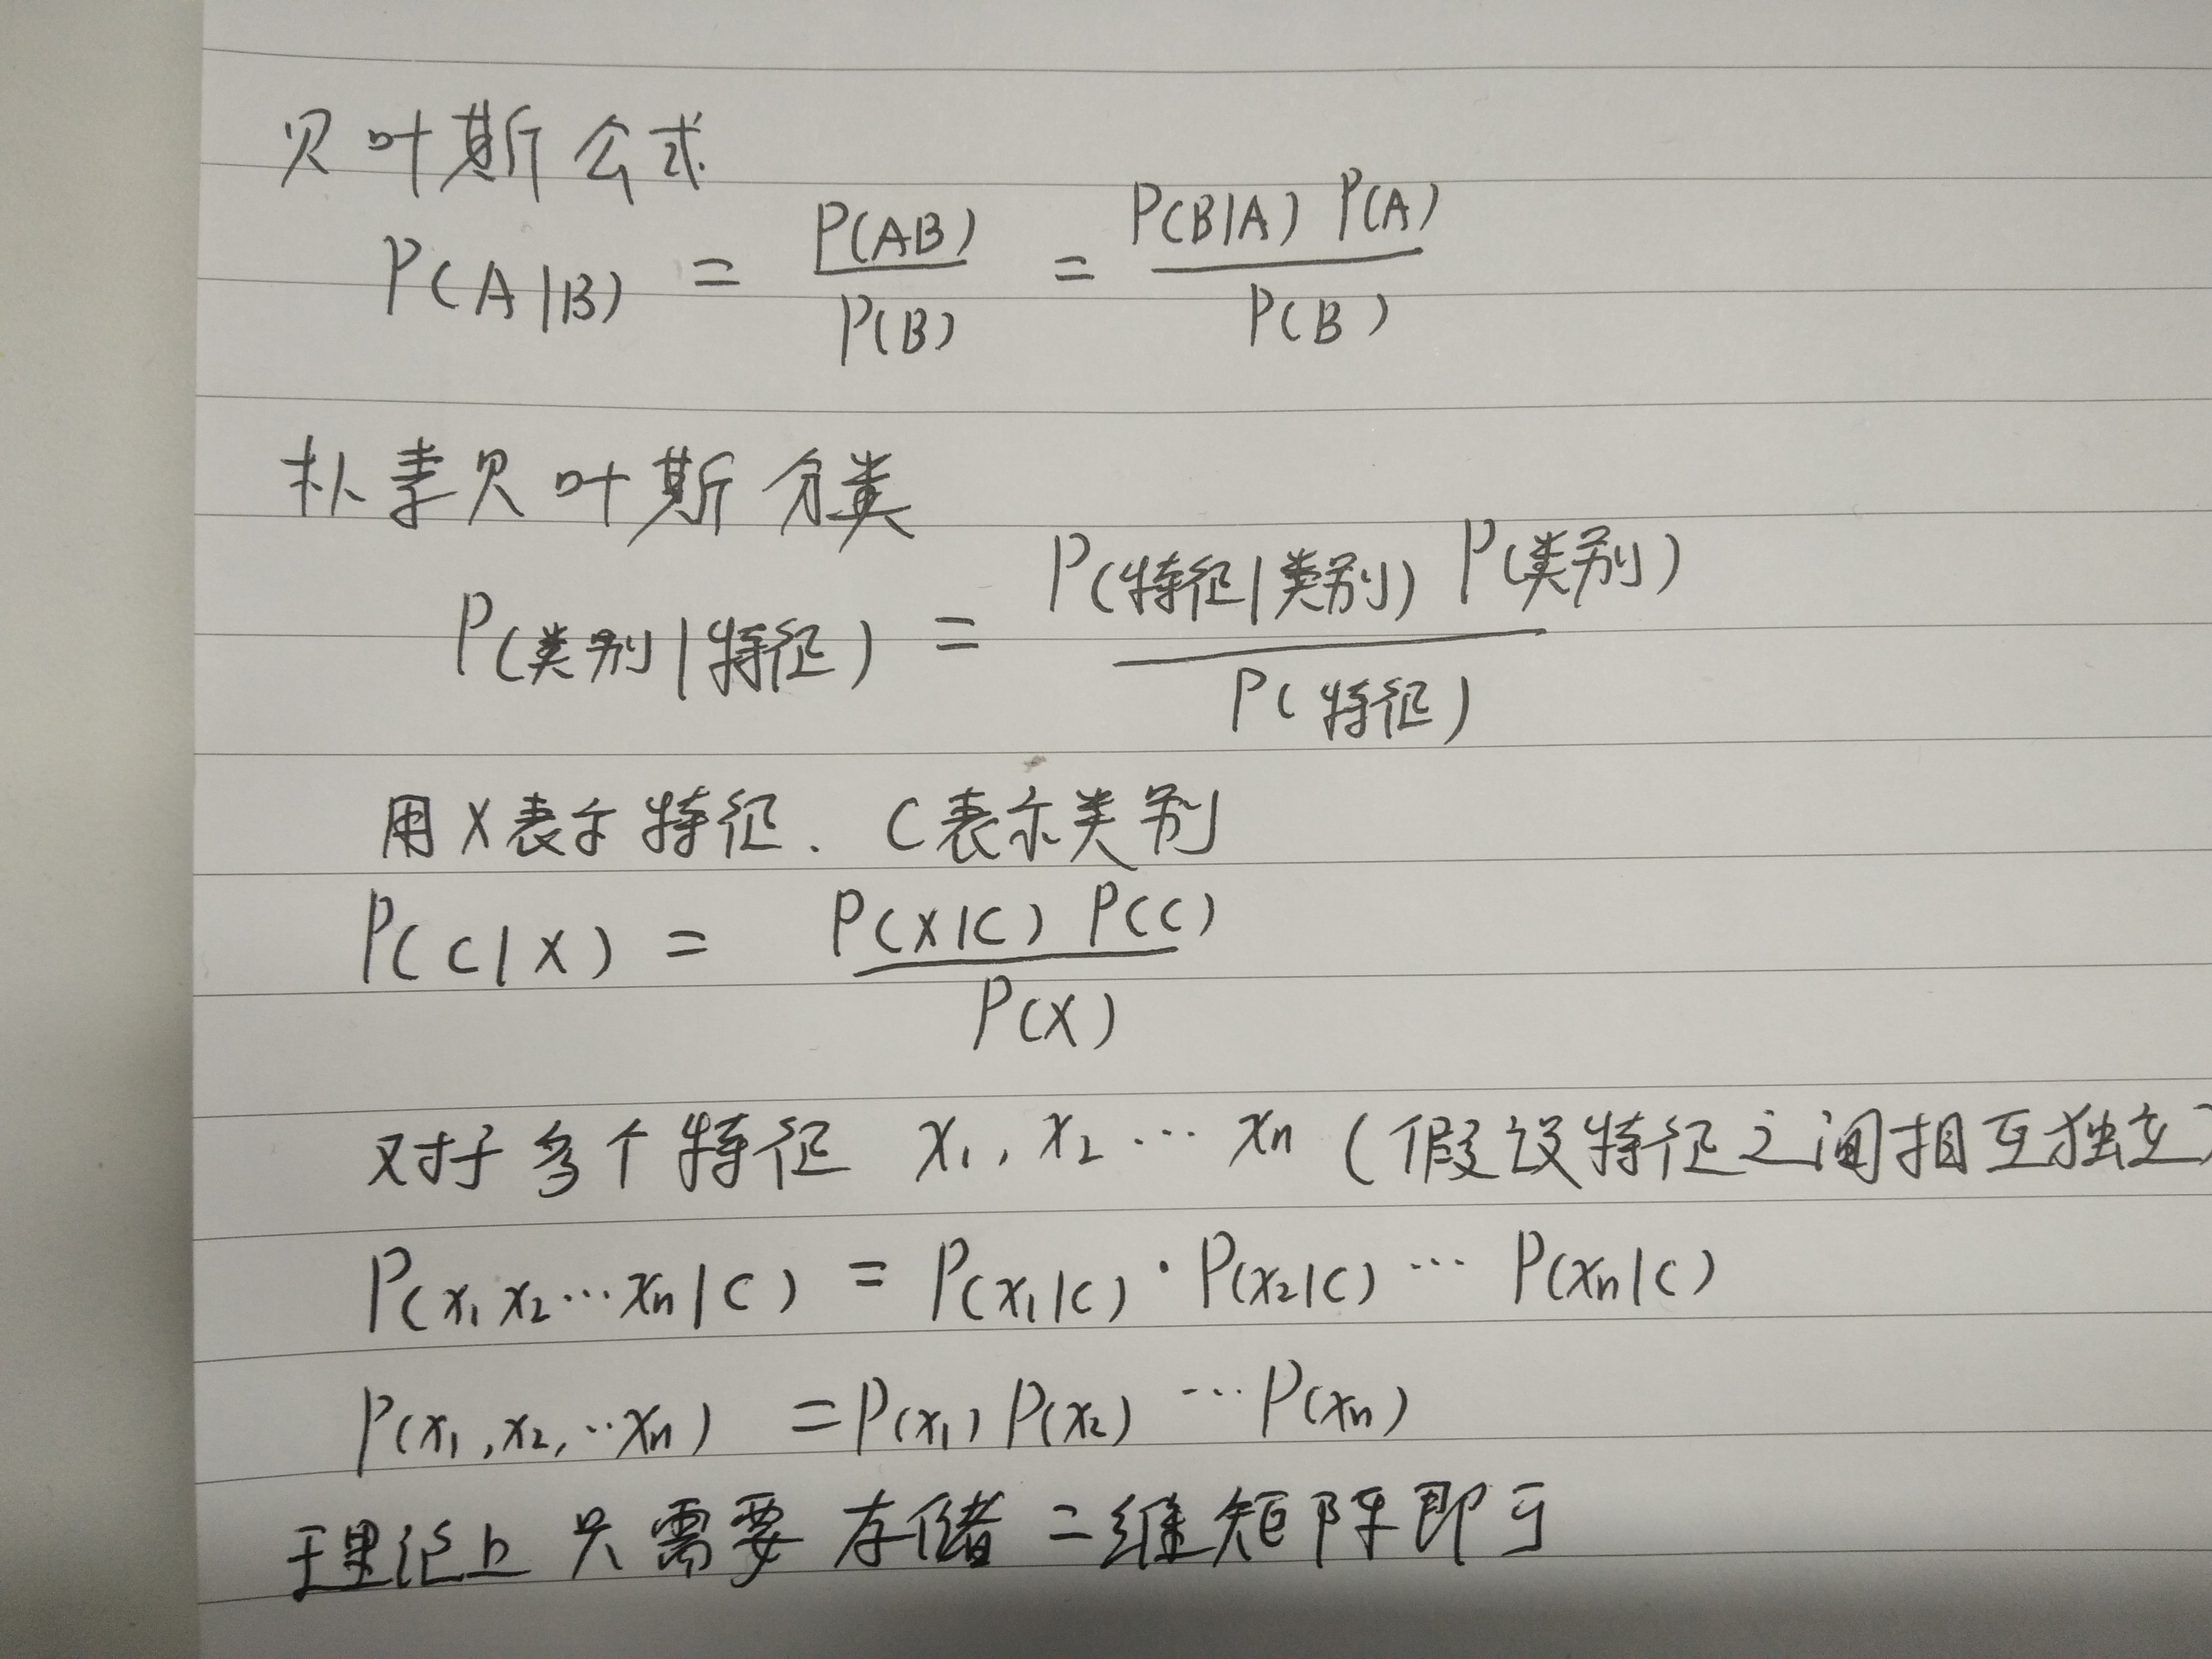 贝叶斯公式
P(A|B) = P(AB)/P(B) = P(B|A) P(A)/P(B)
朴素贝叶斯分类
P(类别|特征) = P(特征|类别) P(类别)/P(特征)
用X表示特征. C表示类别
P(C|X) = P(X|C) P(C)/P(X)
对于多个特征 x₁, x₂ … xₙ (假设特征之间相互独立)
P(x₁ x₂ … xₙ|C) = P(x₁|C) · P(x₂|C) … P(xₙ|C)
P(x₁, x₂, … xₙ) = P(x₁) P(x₂) … P(xₙ)
理论上只需要存储二维矩阵即可